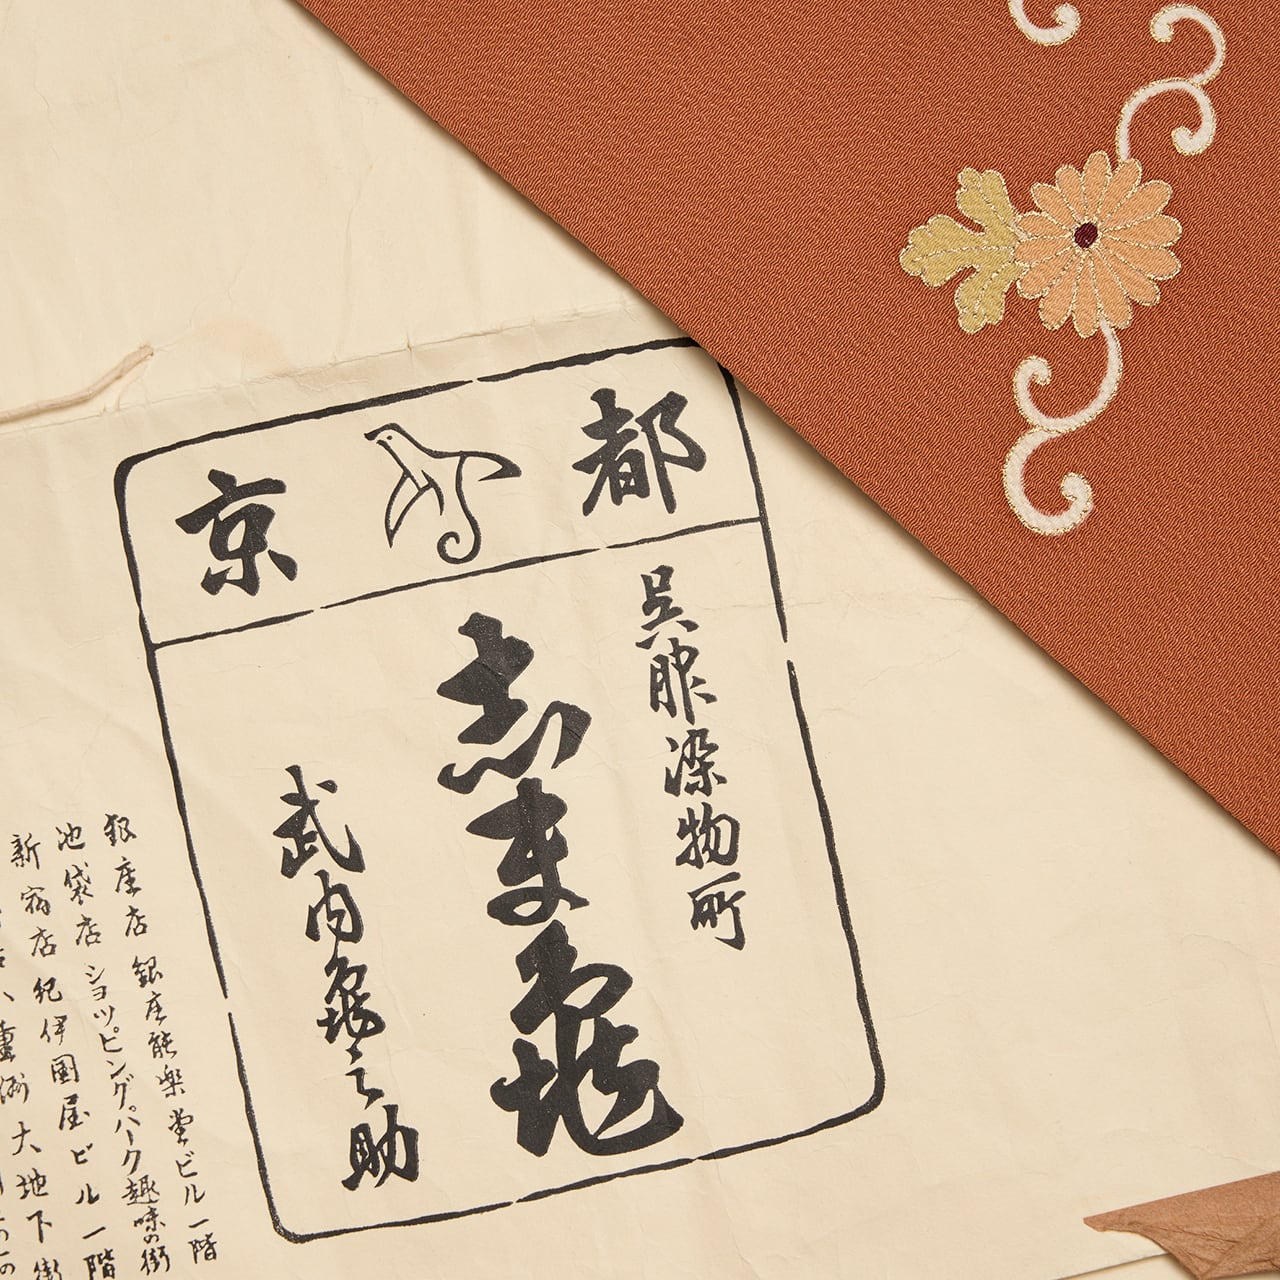 京都
呉服染物所
志ま亀
武内亀之助
銀座店 銀座能楽堂ビル一階
池袋店 ショッピングパーク趣味の街
新宿店 紀伊國屋ビル一階
八重洲大地下街